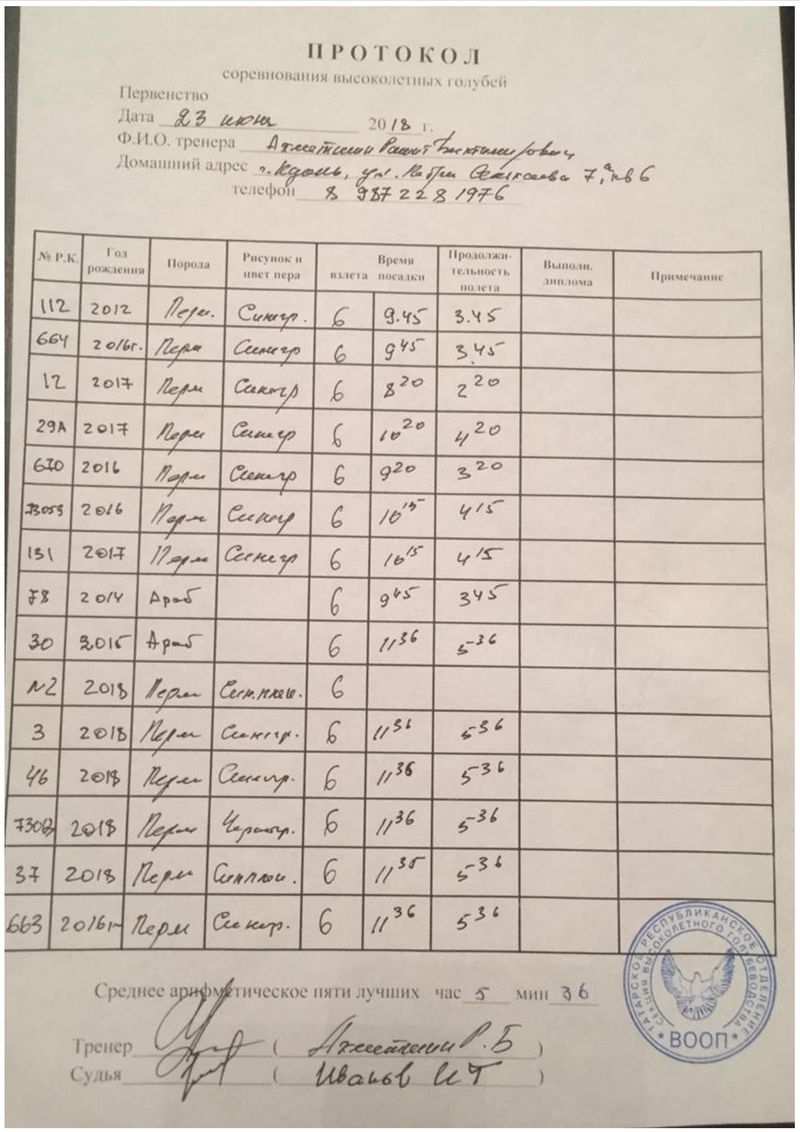 ПРОТОКОЛ
соревнования высоколетных голубей
Первенство
Дата 23 июня 2018 г.
Ф.И.О. тренера Ахметшин Рашит
Домашний адрес ул. 7, кв 6
телефон 8 987 228 1976
№ Р.К. Год рождения Порода Рисунок и цвет пера Время взлета посадки Продолжительность полета Выполн. диплома Примечание
112 2012 Перм. Синегр. 6 9.45 3.45
664 2016г. Перм Синегр 6 9 45 3.45
12 2017 Перм Синегр 6 8 20 2 20
29А 2017 Перм Синегр 6 10 20 4 20
2016 Перм Синегр 6 9 20 3 20
2016 Перм Синегр 6 10 15 4 15
131 2017 Перм Синегр 6 10 15 4 15
78 2014 Араб 6 9 45 3 45
30 2015 Араб 6 11 36 5 36
N2 2018 Перм 6
3 2018 Перм Синегр. 6 11 36 5 36
46 2018 Перм Синегр. 6 11 36 5 36
2018 Перм Черногр. 6 11 36 5 36
37 2018 Перм 6 11 5 36
663 2016г Перм Синегр. 6 11 36 5 36
Среднее арифметическое пяти лучших час 5 мин 36
Тренер ( Ахметшин Р.Б )
Судья ( Иванов И Т )
ТАТАРСКОЕ РЕСПУБЛИКАНСКОЕ ОТДЕЛЕНИЕ
СЕКЦИЯ ВЫСОКОЛЕТНОГО ГОЛУБЕВОДСТВА
ВООП